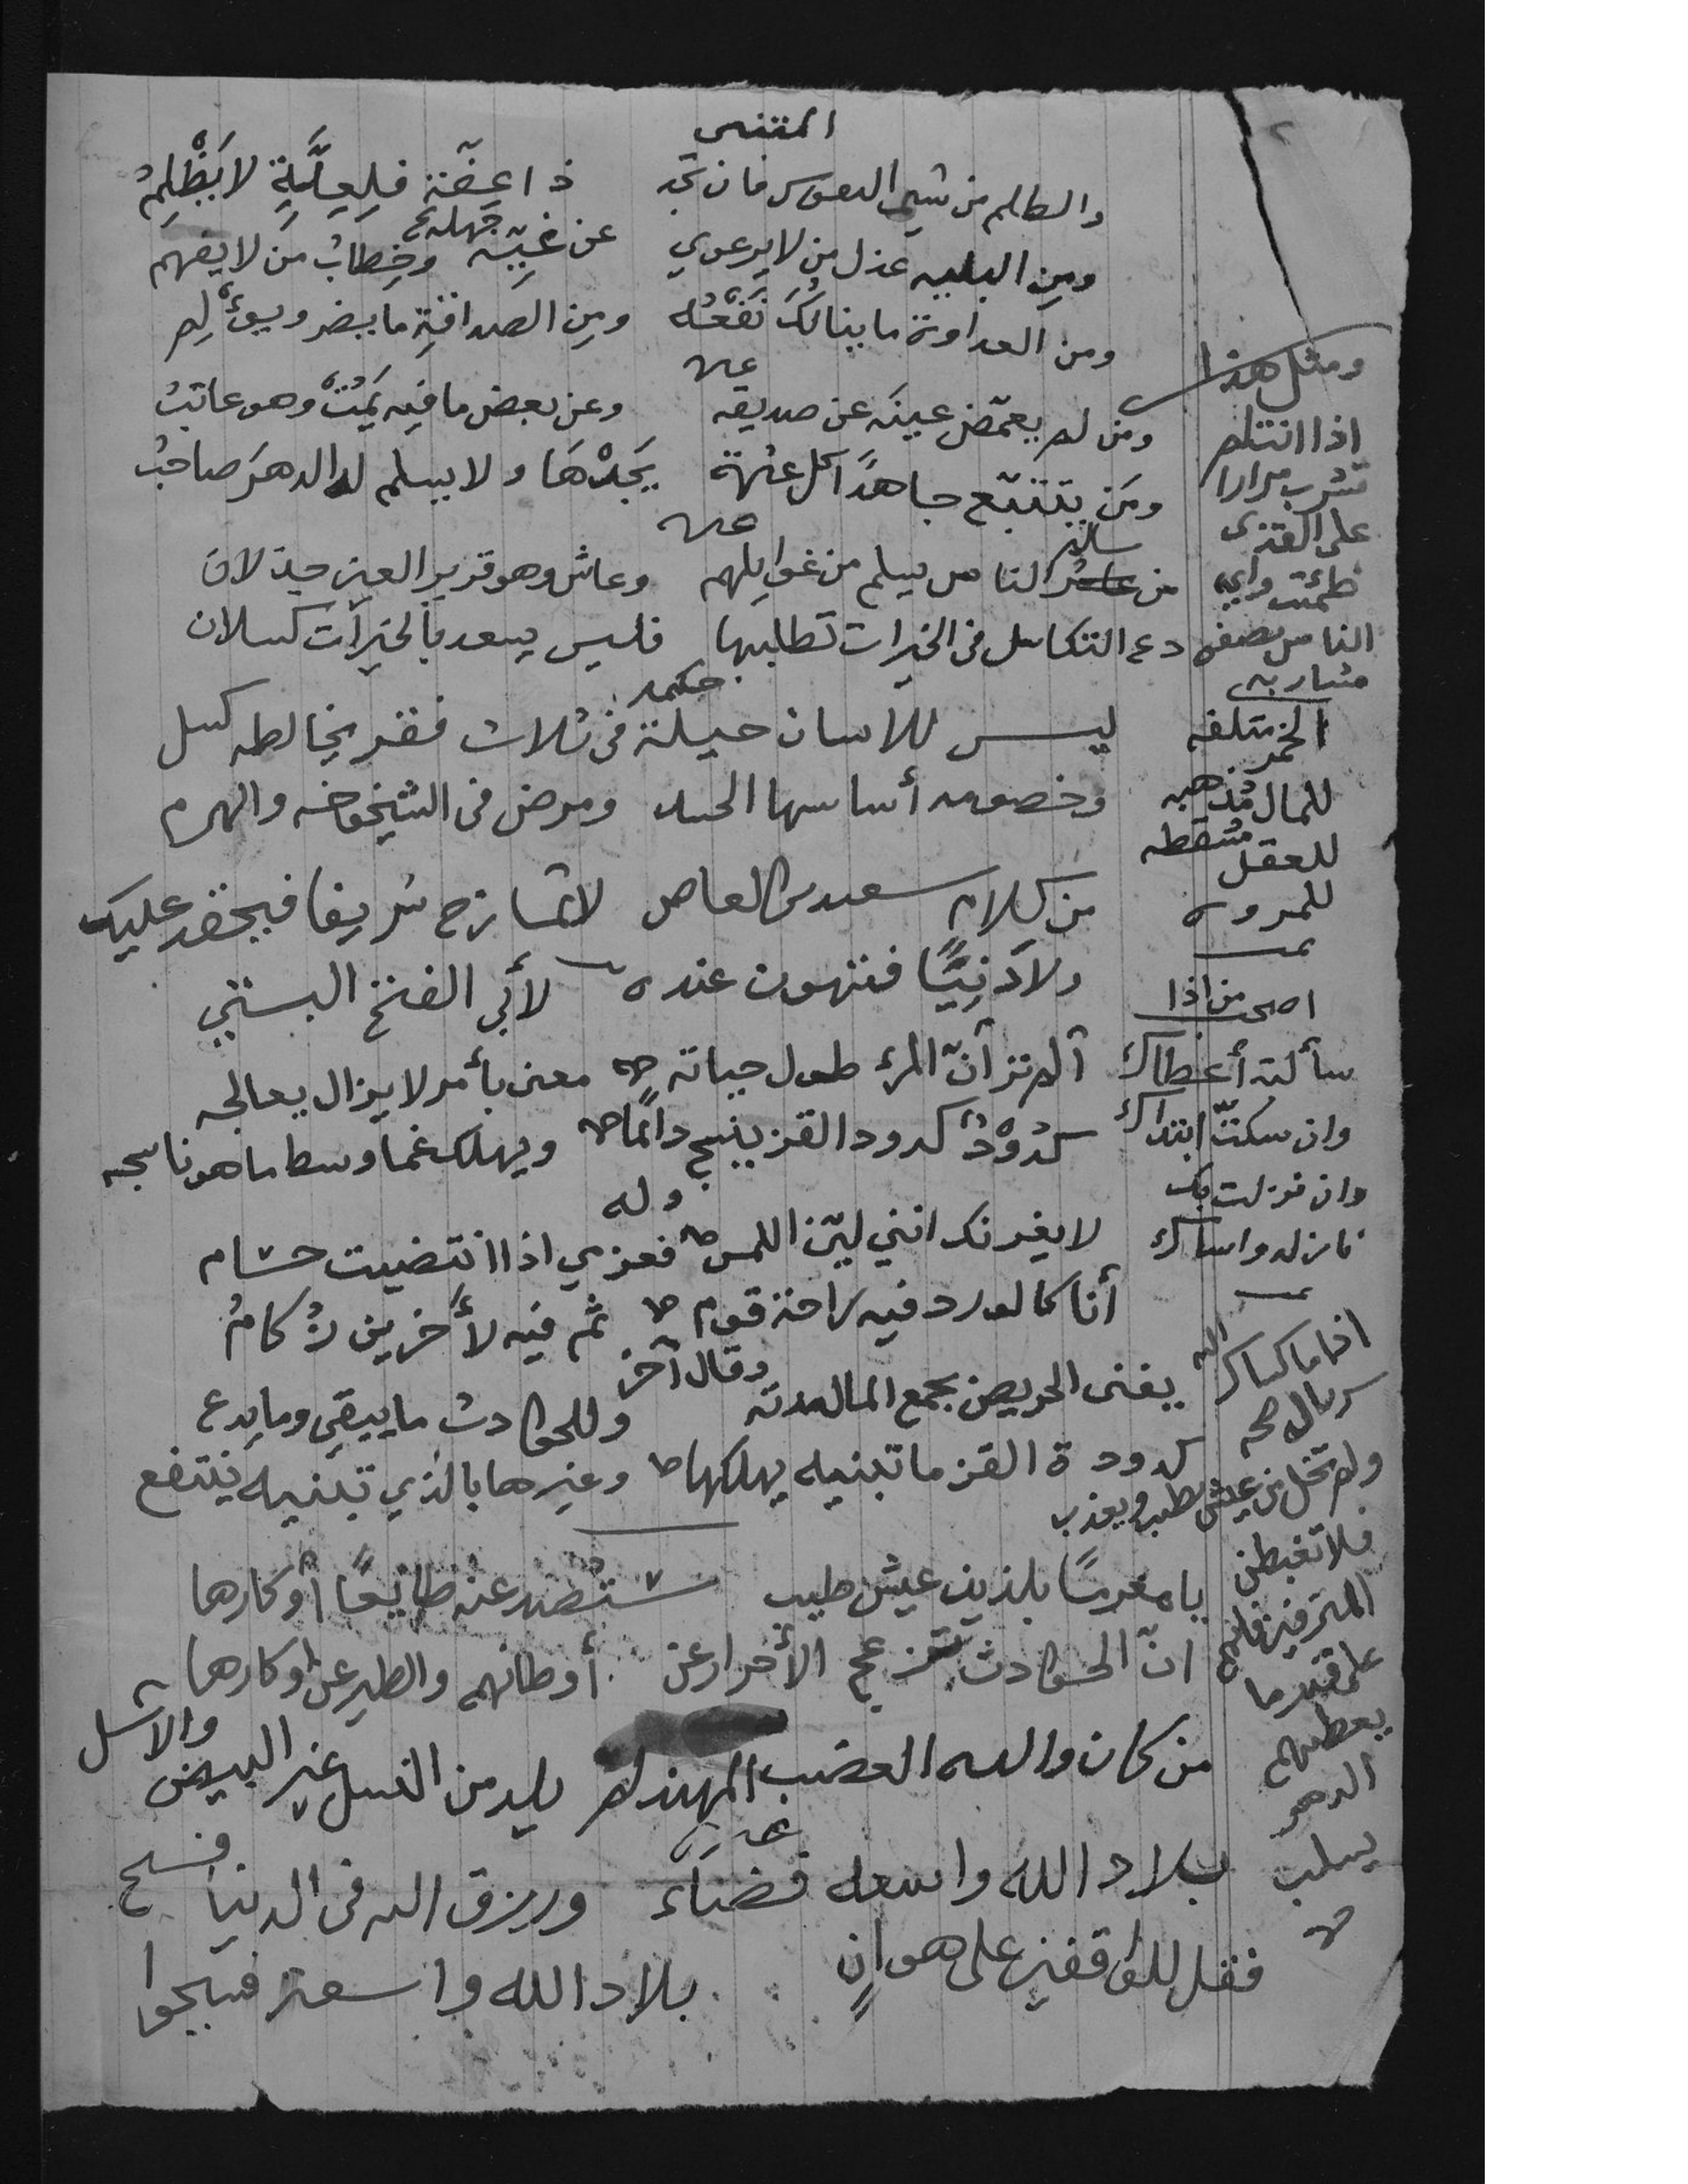 المتنبي
والظلم من شيم النفوس فان تجد ذا عفّة فلِعِلَّةٍ لا يَظْلِمُ
ومن البليه عذل من لا يرعوي عن غيّه جهله وخِطابُ مَن لا يفهم
ومن العداوة ما ينالُكَ نَفْعُهُ ومِن الصداقةِ ما يضر ويؤلِم
ومن لم يغمّض عينَه عن صديقه وعن بعض ما فيه يَمُتْ وهو عاتبُ
ومَن يتتبّع جاهداً كل عثرة يَجِدْهَا ولا يسلم له الدهرَ صاحبُ
من عاشر سالم الناس يسلم من غوايلهم وعاش وهو قرير العين جذلان
دع التكاسل في الخيرات تطلبها فليس يسعد بالخيرات كسلان
حكمه
ليس للانسان حيلة في ثلاث فقر يخالطه كسل
وخصومه أساسها الحسد ومرض في الشيخوخه والهرم
من كلام سعيد بن العاص لا تمازح شريفا فيحقد عليك
ولا دَنِيًّا فتهون عنده لأبي الفتح البستي
ألم تر أنّ المرء طول حياته معنى بأمر لا يزال يعالجه
كدُوْدٍ كدود القز ينسج دائماً ويهلك غما وسط ما هو ناسجه
وله
لا يغرنك انني ليّن اللمس فعزمي اذا انتضيت حسام
أنا كالورد فيه راحة قوم ثم فيه لأخرين زُكامُ
وقال آخر
يفنى الحريص بجمع المال مدته وللحوادث ما يبقي وما يدع
كدودة القز ما تبنيه يهلكها وغيرها بالذي تبنيه ينتفع
يا مغرسًا بلذيذ عيش طيب ستُصَدّ عنه طايعًا أو كارها
انّ الحوادث تزعج الأحرار عن أوطانهم والطير عن أوكارها
من كان والده العضب المهند لم يلد من النسل غير البيض والاسل
بلاد الله واسعه فضاء ورزق الله في الدنيا فسيح
فقل للواقفين على هوانٍ بلاد الله واسعة فسيحوا
ومثل هذا
اذا انت لم
تشرب مرارا
على القذى
ظمئت وأي
الناس تصفو
مشاربه
الخمر متلفه
للمال مُذهبه
للعقل مسقطه
للمروه
اصحب من اذا
سألته أعطاك
وان سكتّ ابتداك
وان نزلت بك
نازله واساك
اذا ما كساك الله
سربال صحه
ولم تخل من عيش يطيب ويعذب
فلا تغبطن
المترفين فإنهم
على قدر ما
يعطيهم
الدهر
يسلب